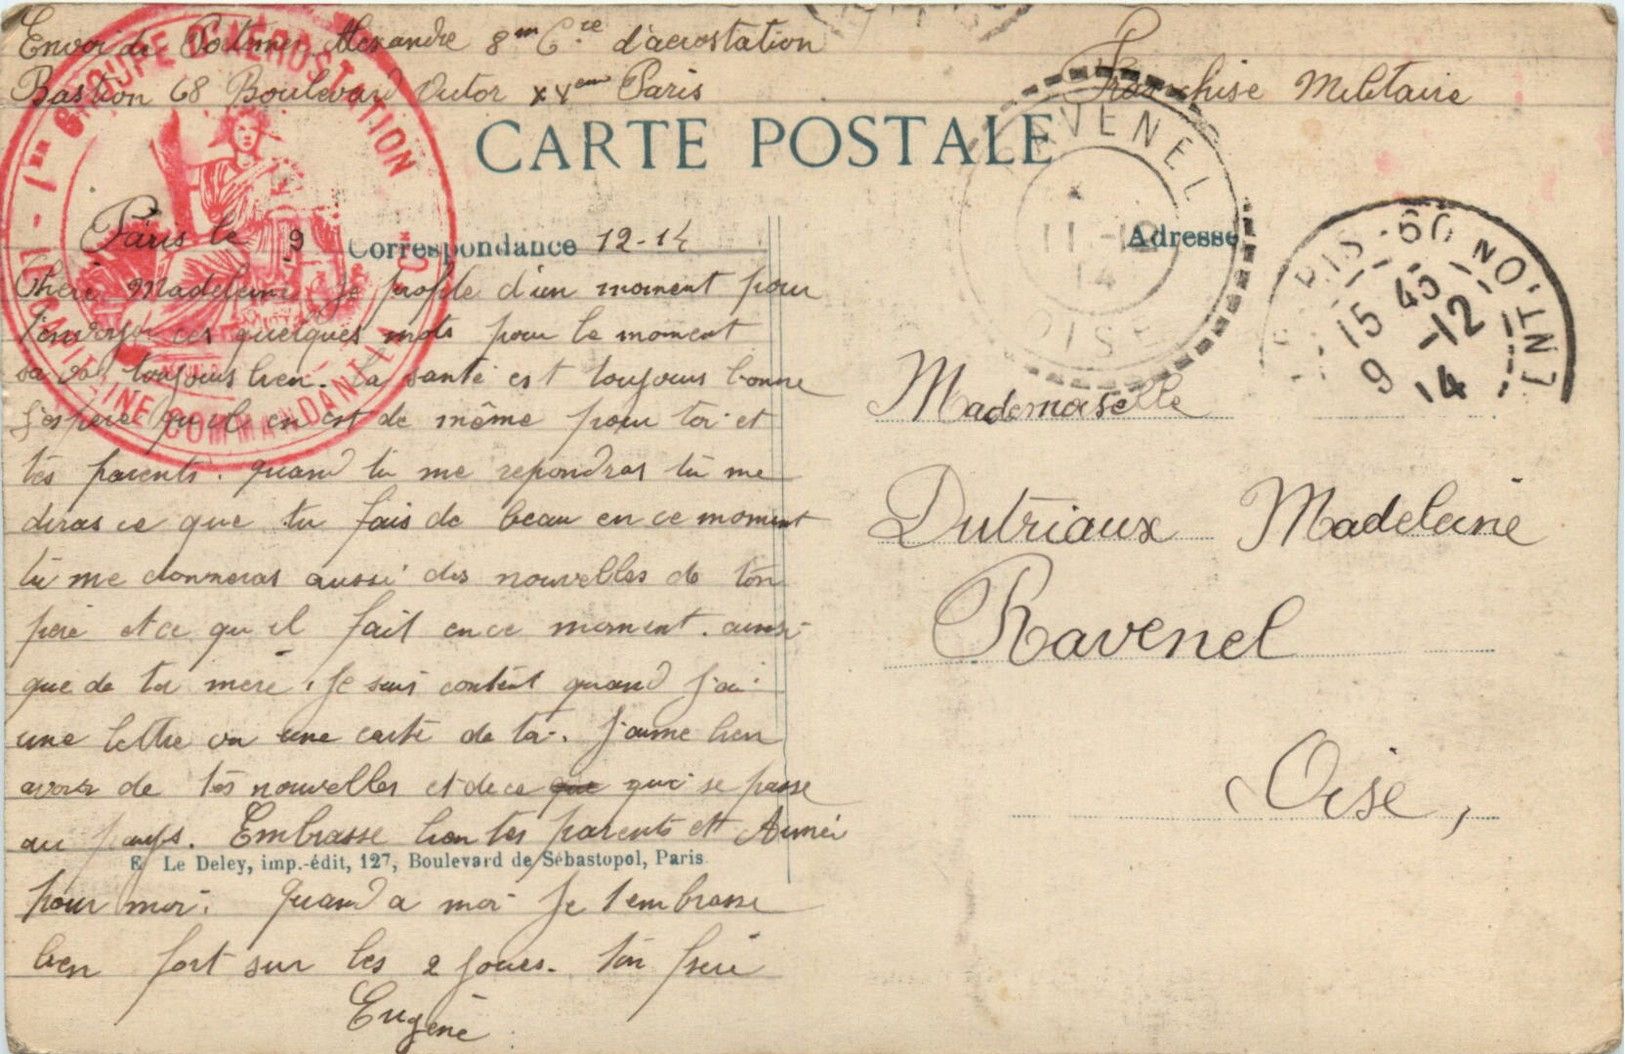 Envoi de Alexandre 8em Cie d'aerostation
Bastion 68 Boulevard Outor XXem Paris
Franchise Militaire
CARTE POSTALE
1er GROUPE D'AEROSTATION
CAPITAINE COMMANDANT
RAVENEL
11-12
14
OISE
PARIS-60 NO'INT)
15 45
9 -12
14
Paris le 9 12-14
Correspondance
Adresse
Chere Madeleine Je profite d'un moment pour
t'envoyer ces quelques mots pour le moment
sa va toujours bien. la santé est toujours bonne
J'espere qu'il en est de même pour toi et
tes parents. quand tu me repondras tu me
diras ce que tu fais de beau en ce moment
tu me donneras aussi des nouvelles de ton
père et ce qu il fait en ce moment. ainsi
que de ta mere. Je suis content quand J'ai
une lettre ou une carte de toi. J'aime bien
avoir de tes nouvelles et de ce que qui se passe
au pays. Embrasse bien tes parents et Aimée
E. Le Deley, imp.-édit, 127, Boulevard de Sébastopol, Paris
pour moi. Quand a moi Je t'embrasse
bien fort sur les 2 Joues. Ton frere
Eugène
Mademoiselle
Dutriaux Madeleine
Ravenel
Oise,